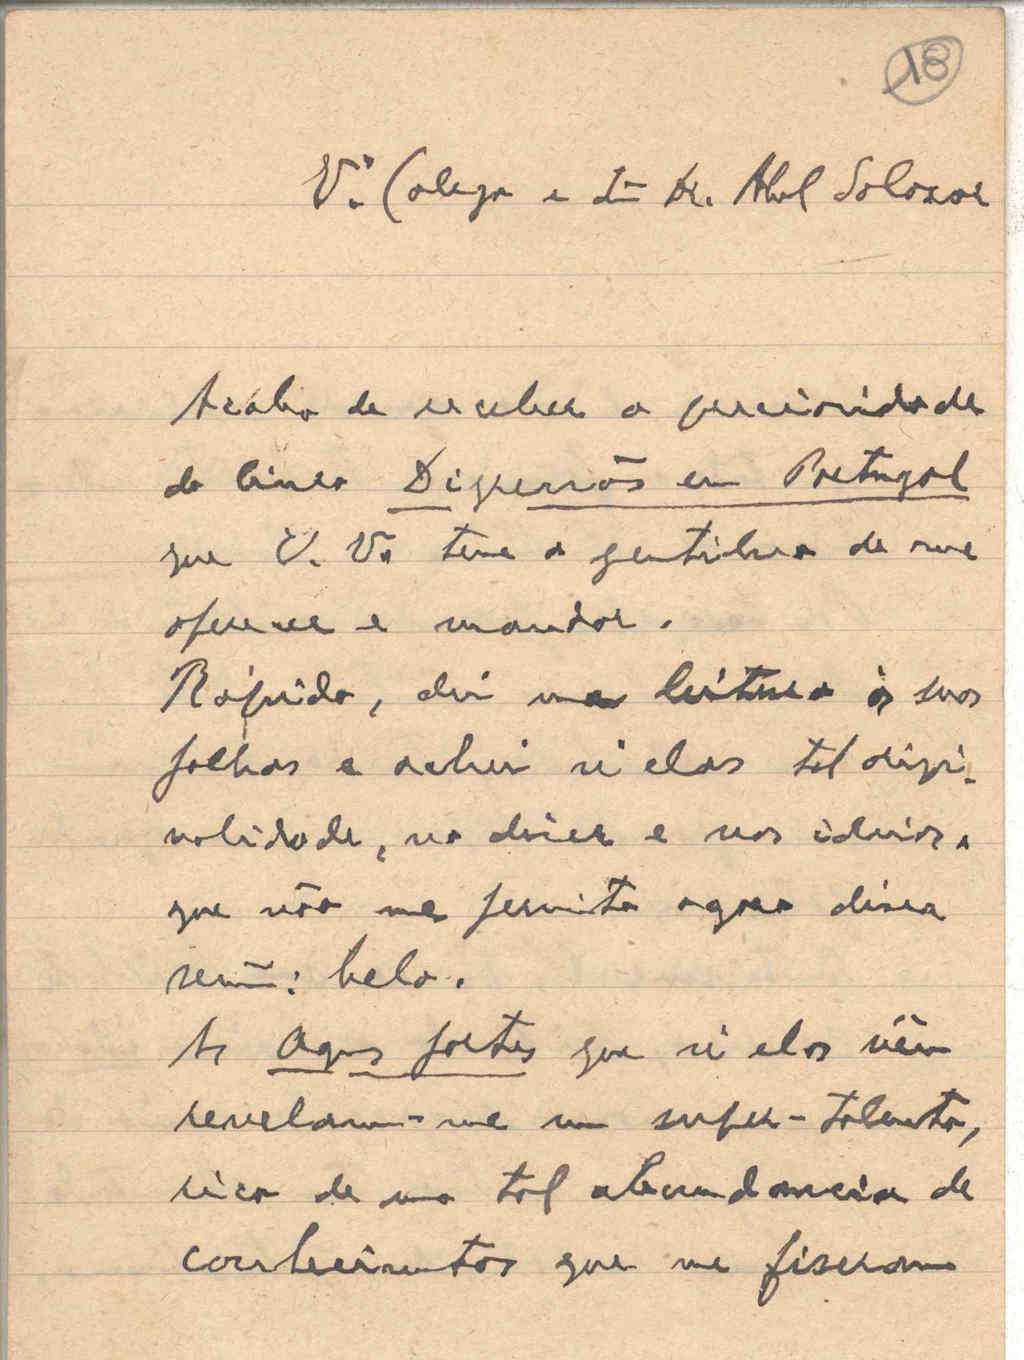 18
V.º Colega e Dr. Abel Salazar
Acabo de receber a preciosidade
do livro Digressões em Portugal
que V. Vª teve a gentileza de me
oferecer e mandar.
Rápida, dei uma leitura às suas
folhas e achei n'elas tal origi-
nalidade, no dizer e nas ideias,
que não me permito agora dizer
senão: belo.
As Aguas fortes que n'elas vêm
revelam-me um super-talento,
rico de uma tal abundancia de
conhecimentos que me fizeram